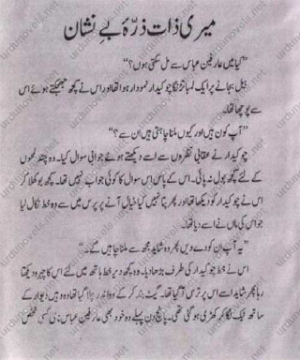 میری ذات ذرّہ بے نشان
"کیا میں عارفین عباس سے مل سکتی ہوں؟"
بیل بجانے پر ایک لمبا تڑنگا چوکیدار نمودار ہوا تھا اور اس نے کچھ جھجکتے ہوئے اس
سے پوچھا تھا۔
"آپ کون ہیں اور کیوں ملنا چاہتی ہیں ان سے؟"
چوکیدار نے عقابی نظروں سے اسے دیکھتے ہوئے جوابی سوال کیا۔ وہ چند لمحوں
کے لئے کچھ بول نہ پائی۔ اس کے پاس اس سوال کا کوئی جواب نہیں تھا۔ کچھ بوکھلا کر
اس نے چوکیدار کو دیکھا تھا اور پھر پتا نہیں کیا خیال آنے پر پرس میں سے وہ خط نکال لیا
جو اس کی ماں نے اسے دیا تھا۔
"یہ آپ ان کو دے دیں پھر وہ شاید مجھ سے ملنا چاہیں گے۔"
اس نے خط چوکیدار کی طرف بڑھا دیا۔ وہ کچھ دیر خط ہاتھ میں لئے اس کا چہرہ دیکھتا
رہا پھر شاید اسے اس پر ترس آ گیا تھا۔ گیٹ بند کر کے وہ اندر چلا گیا تھا وہ وہیں دیوار کے
ساتھ ٹیک لگا کر کھڑی ہو گئی تھی۔ پانچ دن پہلے وہ خود بھی عارفین عباس نامی کسی شخص